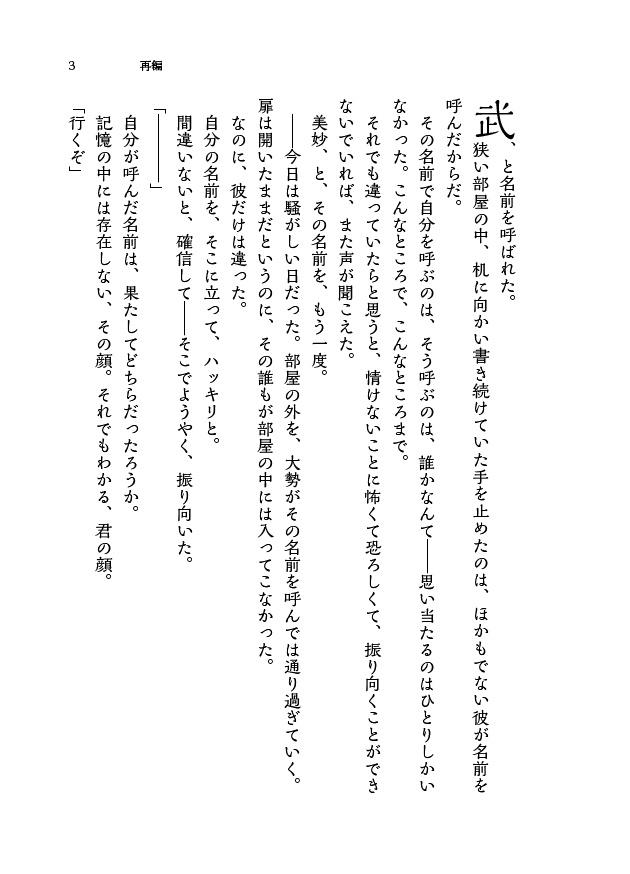 3 再編
武、と名前を呼ばれた。
狭い部屋の中、机に向かい書き続けていた手を止めたのは、ほかもでない彼が名前を
呼んだからだ。
その名前で自分を呼ぶのは、そう呼ぶのは、誰かなんて――思い当たるのはひとりしかい
なかった。こんなところで、こんなところまで。
それでも違っていたらと思うと、情けないことに怖くて恐ろしくて、振り向くことができ
ないでいれば、また声が聞こえた。
美妙、と、その名前を、もう一度。
――今日は騒がしい日だった。部屋の外を、大勢がその名前を呼んでは通り過ぎていく。
扉は開いたままだというのに、その誰もが部屋の中には入ってこなかった。
なのに、彼だけは違った。
自分の名前を、そこに立って、ハッキリと。
間違いないと、確信して――そこでようやく、振り向いた。
「――――」
自分が呼んだ名前は、果たしてどちらだったろうか。
記憶の中には存在しない、その顔。それでもわかる、君の顔。
「行くぞ」